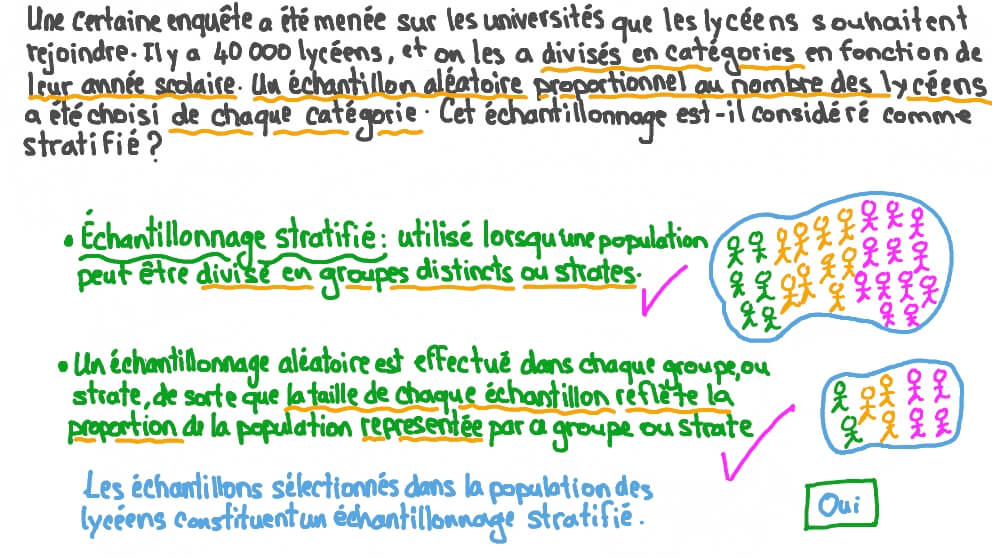 Une certaine enquête a été menée sur les universités que les lycéens souhaitent
rejoindre. Il y a 40 000 lycéens, et on les a divisés en catégories en fonction de
leur année scolaire. Un échantillon aléatoire proportionnel au nombre des lycéens
a été choisi de chaque catégorie. Cet échantillonnage est-il considéré comme
stratifié ?
• Échantillonnage stratifié : utilisé lorsqu'une population
peut être divisé en groupes distincts ou strates.
• Un échantillonnage aléatoire est effectué dans chaque groupe, ou
strate, de sorte que la taille de chaque échantillon reflète la
proportion de la population representée par a groupe ou strate
Les échantillons sélectionnés dans la population des
lycéens constituent un échantillonnage stratifié.
Oui